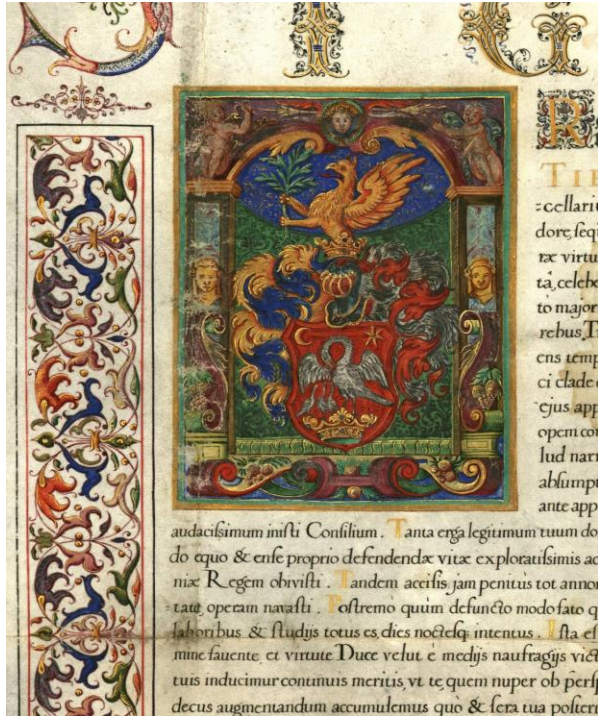 I G
R
TIB
=cellariu
dore, sequ
ræ virtu
tâ, celeb
to major
rebus, T
ens temp
ci clade
ejus app
opem con
lud narr
absumpt
ante app
audacissimum inisti Consilium. Tanta erga legitimum tuum do
do equo & ense proprio defendendæ vitæ exploratissimis ac
niæ Regem obivisti. Tandem accisis jam penitus tot annor
=tate operam navasti. Postremo quum defuncto modo fato q
laboribus & studijs totus es, dies noctesq; intentus. Ista es
mine favente, et virtute Duce velut è medijs naufragijs vict
tuis inducimur continuis meritis, vt te, quem nuper ob persp
decus augmentandum accumulemus quò & sera tua posterr